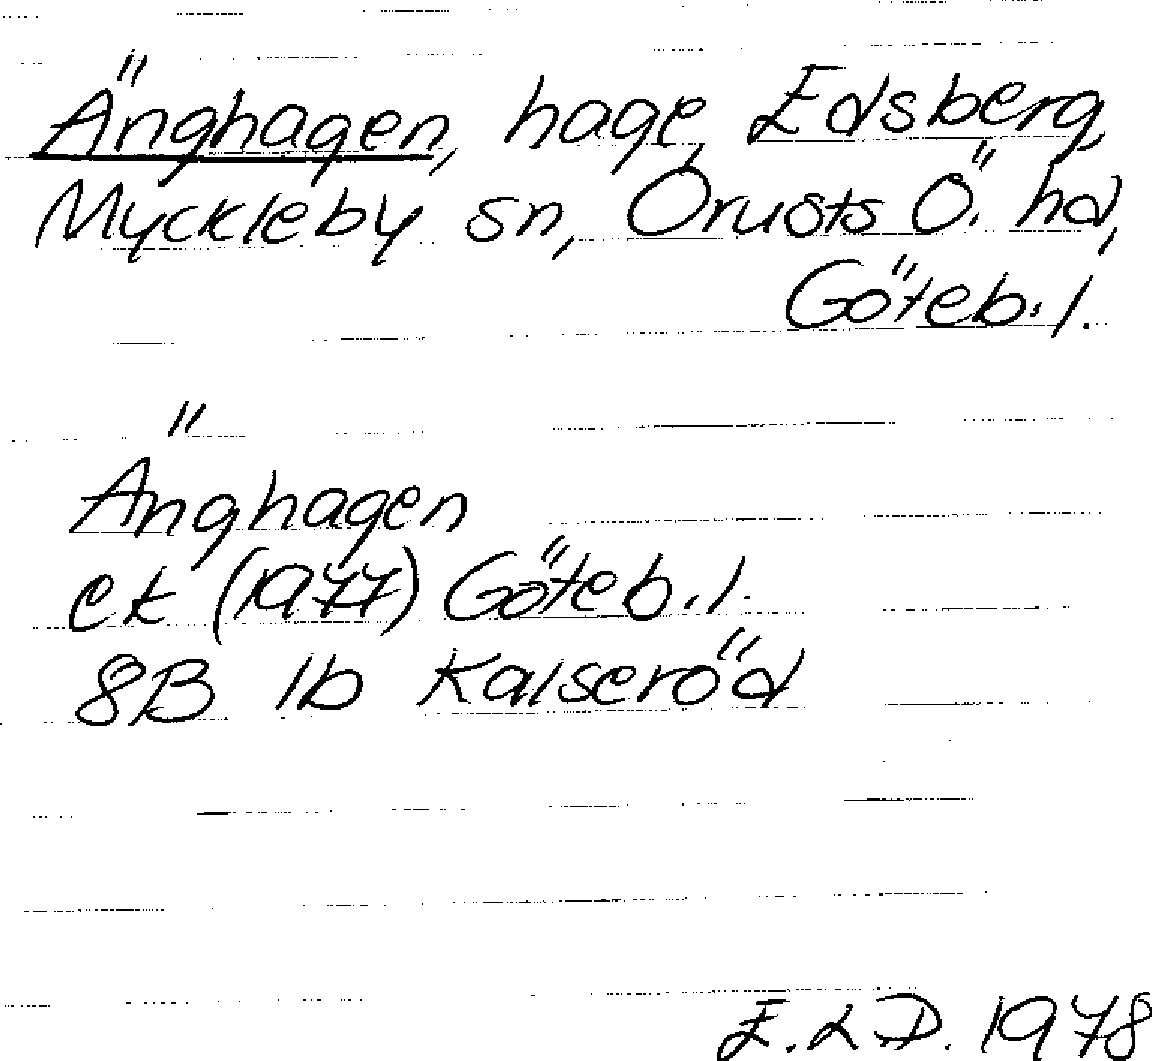 Änghagen, hage, Edsberg,
Myckleby sn, Orusts Ö. hd,
Göteb. l.
Änghagen
ek (1977) Göteb. l.
8B 1b Kalseröd
E.L.D. 1978